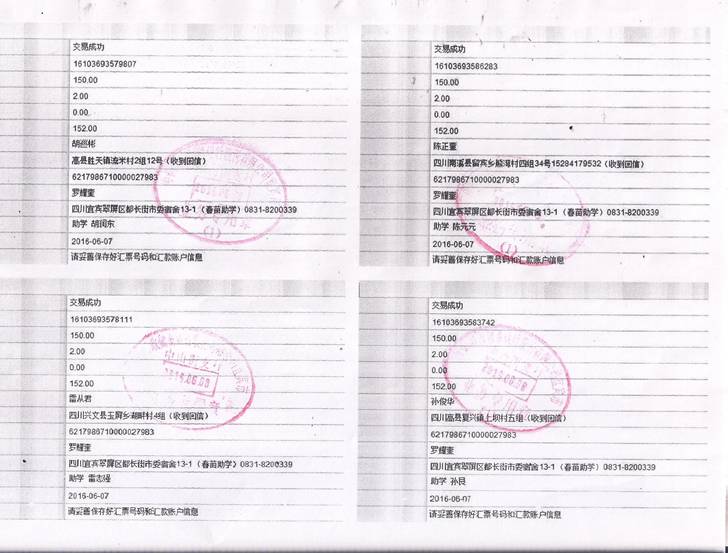 交易成功
16103693579807
150.00
2.00
0.00
152.00
胡巡彬
高县胜天镇流米村2组12号（收到回信）
6217986710000027983
罗耀奎
四川宜宾翠屏区都长街市委宿舍13-1（春苗助学）0831-8200339
助学 胡润东
2016-06-07
请妥善保存好汇票号码和汇款账户信息
交易成功
16103693586283
150.00
2.00
0.00
152.00
陈正奎
四川南溪县留宾乡熊洞村四组34号15284179532（收到回信）
6217986710000027983
罗耀奎
四川宜宾翠屏区都长街市委宿舍13-1（春苗助学）0831-8200339
助学 陈元元
2016-06-07
请妥善保存好汇票号码和汇款账户信息
交易成功
16103693578111
150.00
2.00
0.00
152.00
雷从君
四川兴文县玉屏乡湖畔村4组（收到回信）
6217986710000027983
罗耀奎
四川宜宾翠屏区都长街市委宿舍13-1（春苗助学）0831-8200339
助学 雷志强
2016-06-07
请妥善保存好汇票号码和汇款账户信息
2016.06.08
交易成功
16103693583742
150.00
2.00
0.00
152.00
孙俊华
四川高县复兴镇上坝村五组（收到回信）
6217986710000027983
罗耀奎
四川宜宾翠屏区都长街市委宿舍13-1（春苗助学）0831-8200339
助学 孙艮
2016-06-07
请妥善保存好汇票号码和汇款账户信息
2016.06.08